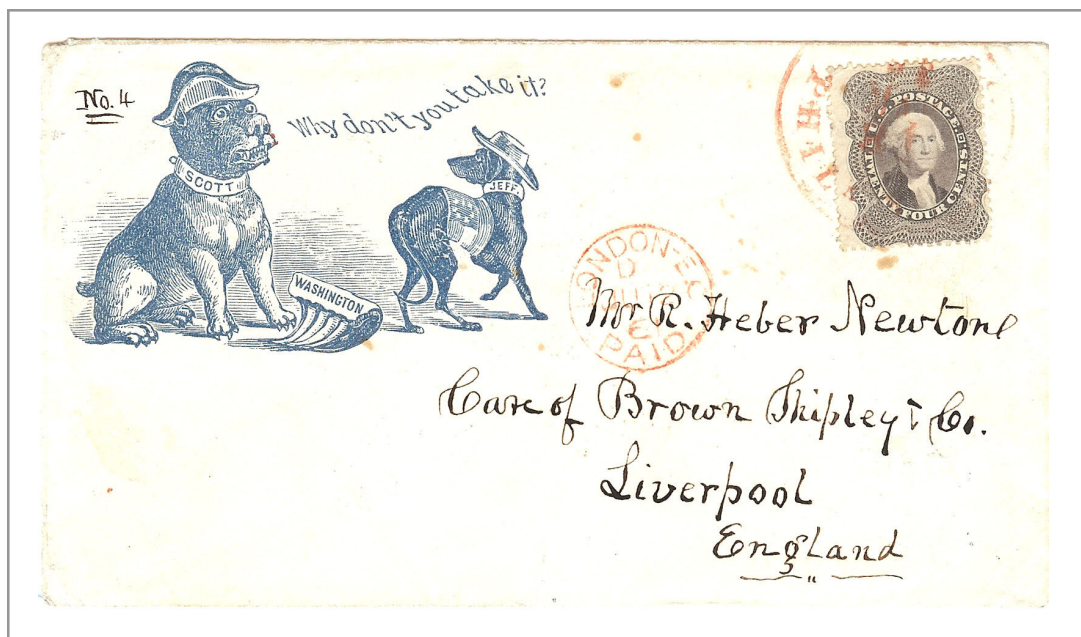 No. 4
Why don't you take it?
SCOTT
JEFF.
WASHINGTON
U.S. POSTAGE.
TWENTY FOUR CENTS
PHIL
LONDON-EC
PAID
Mr R. Heber Newton
Care of Brown Shipley & Co.
Liverpool
England